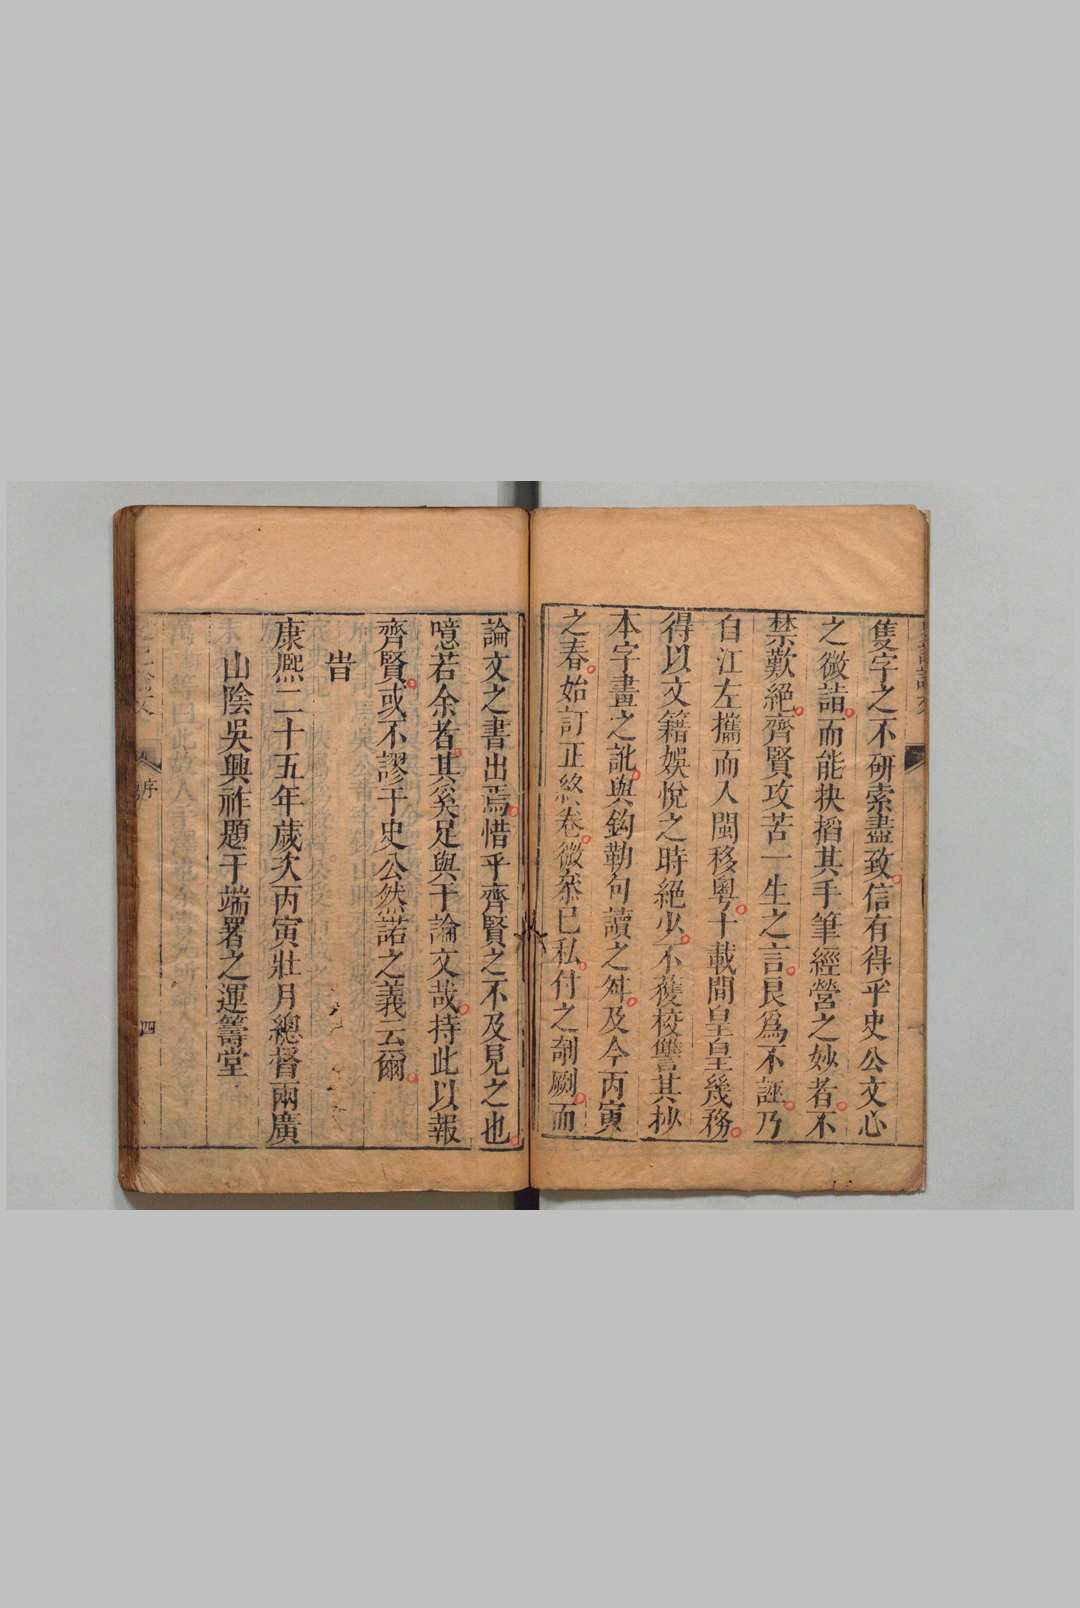 隻字之不研索盡致信有得乎史公文心
之微詣而能抉搯其手筆經營之妙者不
禁歎絕齊賢攻苦一生之言良爲不誣乃
自江左攜而入閩移粵十載間皇皇幾務
得以文籍娛悅之時絕少不獲校讐其抄
本字畫之訛與鈎勒句讀之舛及今丙寅
之春始訂正終卷微衆已私付之剞劂而
論文之書出焉惜乎齊賢之不及見之也
噫若余者其奚足與于論文哉持此以報
齊賢或不謬于史公然諾之義云爾
旹
康熙二十五年歲次丙寅壯月總督兩廣
山陰吳興祚題于端署之運籌堂
序
四